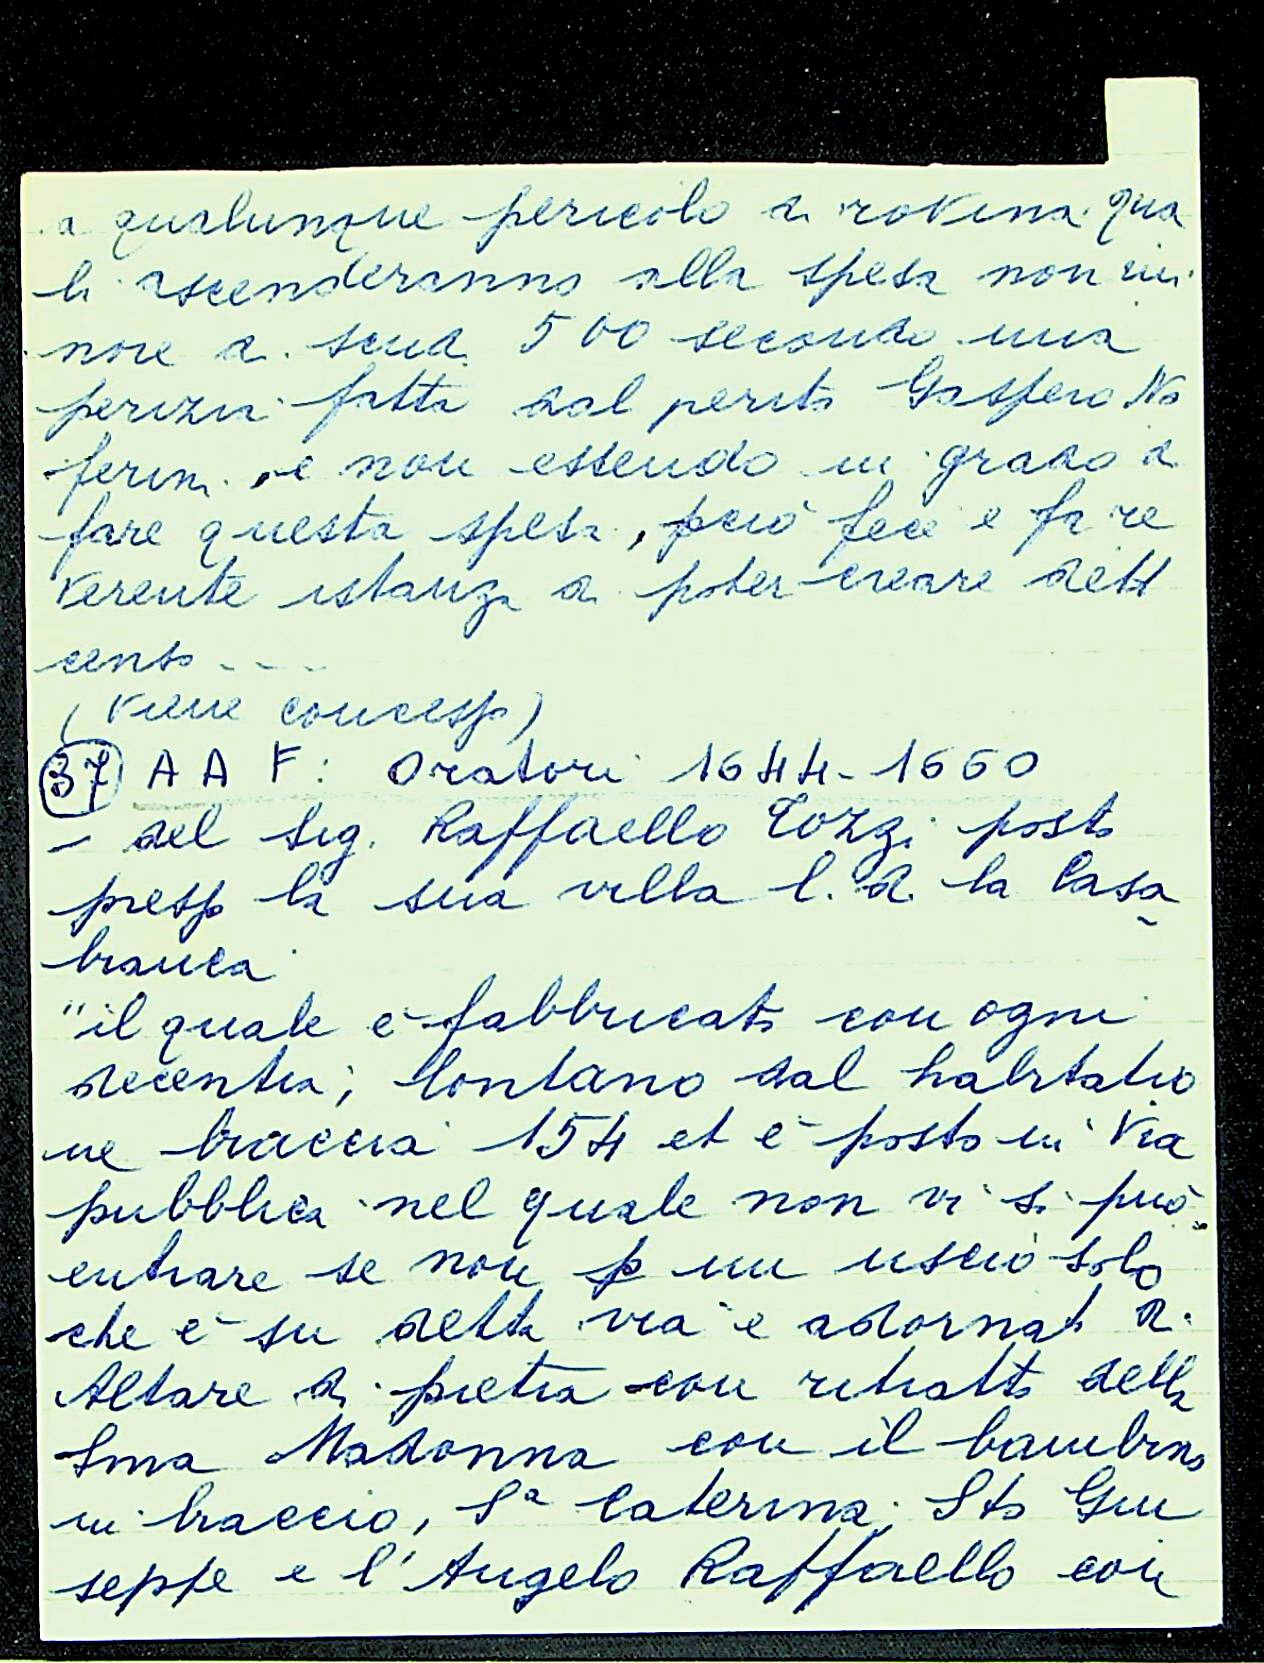 a qualunque pericolo di rovina qua
li ascenderanno alla spesa non mi
nore di scudi 500 secondo una
perizia fatta dal perito Gaspero No
ferini, e non essendo in grado di
fare questa spesa, però fece e fa re
verente istanza di poter creare detto
censo - - - -
(viene concesso)
(37) A A F: Oratori 1644-1660
- del Sig. Raffaello Tozzi posto
presso la sua villa l. d. la Casa
bianca
"il quale è fabbricato con ogni
decentia; lontano dal habitatio
ne braccia 154 et è posto in via
pubblica nel quale non vi si può
entrare se non p un uscio solo
che è su detta via e adornato di
Altare di pietra con ritratto della
Sma Madonna con il bambino
in braccio, Sª Caterina, Sto Giu
seppe e l'Angelo Raffaello con